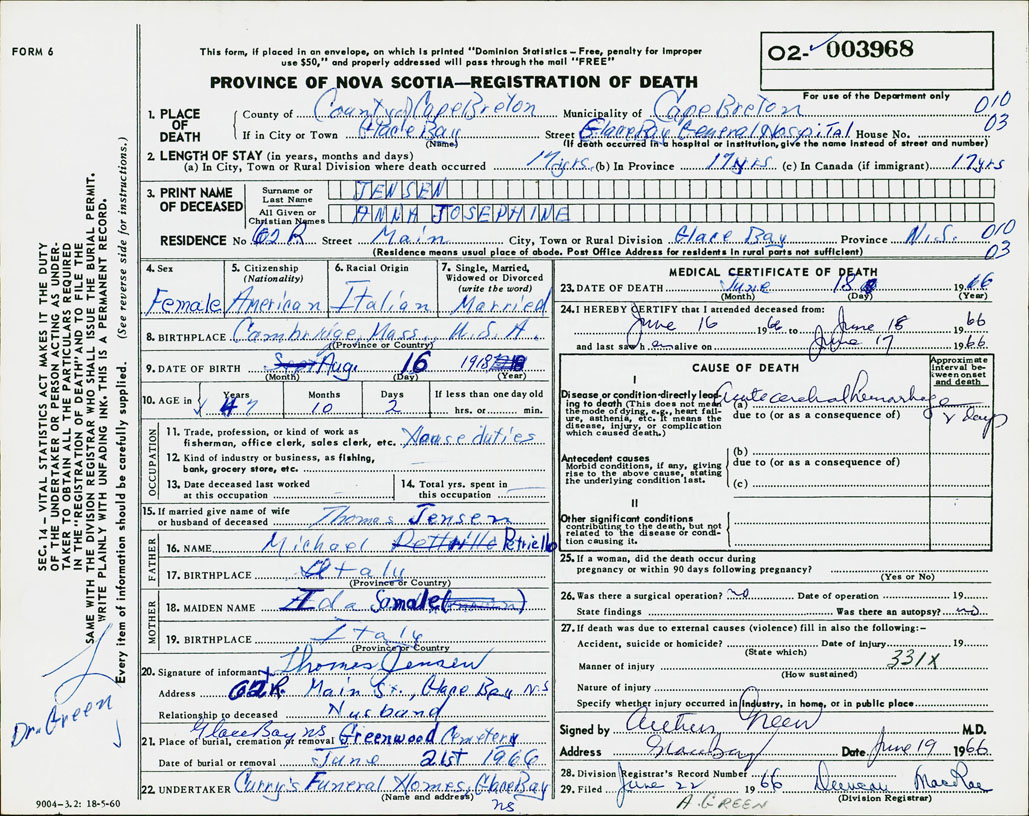 FORM 6
This form, if placed in an envelope, on which is printed "Dominion Statistics – Free, penalty for improper
use $50," and properly addressed will pass through the mail "FREE"
PROVINCE OF NOVA SCOTIA—REGISTRATION OF DEATH
02- 003968
For use of the Department only
1. PLACE OF DEATH
County of County of Cape Breton Municipality of Cape Breton 010
If in City or Town Glace Bay Street Glace Bay General Hospital House No. 03
(Name) (If death occurred in a hospital or institution, give the name instead of street and number)
2. LENGTH OF STAY (in years, months and days)
(a) In City, Town or Rural Division where death occurred 17 yrs. (b) In Province 17 yrs (c) In Canada (if immigrant) 17 yrs
3. PRINT NAME OF DECEASED
Surname or Last Name JENSEN
All Given or Christian Names ANNA JOSEPHINE
RESIDENCE No. 62 R Street Main City, Town or Rural Division Glace Bay Province N.S. 010
(Residence means usual place of abode. Post Office Address for residents in rural parts not sufficient) 03
4. Sex
Female
5. Citizenship
(Nationality)
American
6. Racial Origin
Italian
7. Single, Married,
Widowed or Divorced
(write the word)
Married
8. BIRTHPLACE Cambridge, Mass., U.S.A.
(Province or Country)
9. DATE OF BIRTH Aug. 16 1918
(Month) (Day) (Year)
10. AGE in Years Months Days If less than one day old
47 10 2 hrs. or min.
OCCUPATION
11. Trade, profession, or kind of work as
fisherman, office clerk, sales clerk, etc. House duties
12. Kind of industry or business, as fishing,
bank, grocery store, etc.
13. Date deceased last worked
at this occupation
14. Total yrs. spent in
this occupation
15. If married give name of wife
or husband of deceased Thomas Jensen
FATHER
16. NAME Michael Petriello
17. BIRTHPLACE Italy
(Province or Country)
MOTHER
18. MAIDEN NAME Ida Samale
19. BIRTHPLACE Italy
(Province or Country)
20. Signature of informant Thomas Jensen
Address 62 R. Main St., Glace Bay NS
Relationship to deceased Husband
Glace Bay ns
21. Place of burial, cremation or removal Greenwood Cemetery
Date of burial or removal June 21st 1966
22. UNDERTAKER Curry's Funeral Homes, Glace Bay
(Name and address) ns
MEDICAL CERTIFICATE OF DEATH
23. DATE OF DEATH June 18 1966
(Month) (Day) (Year)
24. I HEREBY CERTIFY that I attended deceased from:
June 16 1966 to June 18 1966
and last saw h er alive on June 17 1966
CAUSE OF DEATH
Approximate
interval be-
tween onset
and death
I
Disease or condition directly lead-
ing to death (This does not mean
the mode of dying, e.g., heart fail-
ure, asthenia, etc. It means the
disease, injury, or complication
which caused death.)
(a) Acute cerebral hemorrhage
due to (or as a consequence of)
2 days
Antecedent causes
Morbid conditions, if any, giving
rise to the above cause, stating
the underlying condition last.
(b)
due to (or as a consequence of)
(c)
II
Other significant conditions
contributing to the death, but not
related to the disease or condi-
tion causing it.
25. If a woman, did the death occur during
pregnancy or within 90 days following pregnancy?
(Yes or No)
26. Was there a surgical operation? no Date of operation 19
State findings Was there an autopsy? no
27. If death was due to external causes (violence) fill in also the following:–
Accident, suicide or homicide? Date of injury 19
(State which)
Manner of injury 331X
(How sustained)
Nature of injury
Specify whether injury occurred in Industry, in home, or in public place
Signed by Arthur Green M.D.
Address Glace Bay Date June 19 1966
28. Division Registrar's Record Number
29. Filed June 22 1966 Duncan MacRae
(Division Registrar)
A. GREEN
SEC. 14 – VITAL STATISTICS ACT MAKES IT THE DUTY
OF THE UNDERTAKER OR PERSON ACTING AS UNDER-
TAKER TO OBTAIN ALL THE PARTICULARS REQUIRED
IN THE "REGISTRATION OF DEATH" AND TO FILE THE
SAME WITH THE DIVISION REGISTRAR WHO SHALL ISSUE THE BURIAL PERMIT.
WRITE PLAINLY WITH UNFADING INK. THIS IS A PERMANENT RECORD.
Every item of information should be carefully supplied. (See reverse side for instructions.)
Dr. Green
9004–3.2: 18-5-60